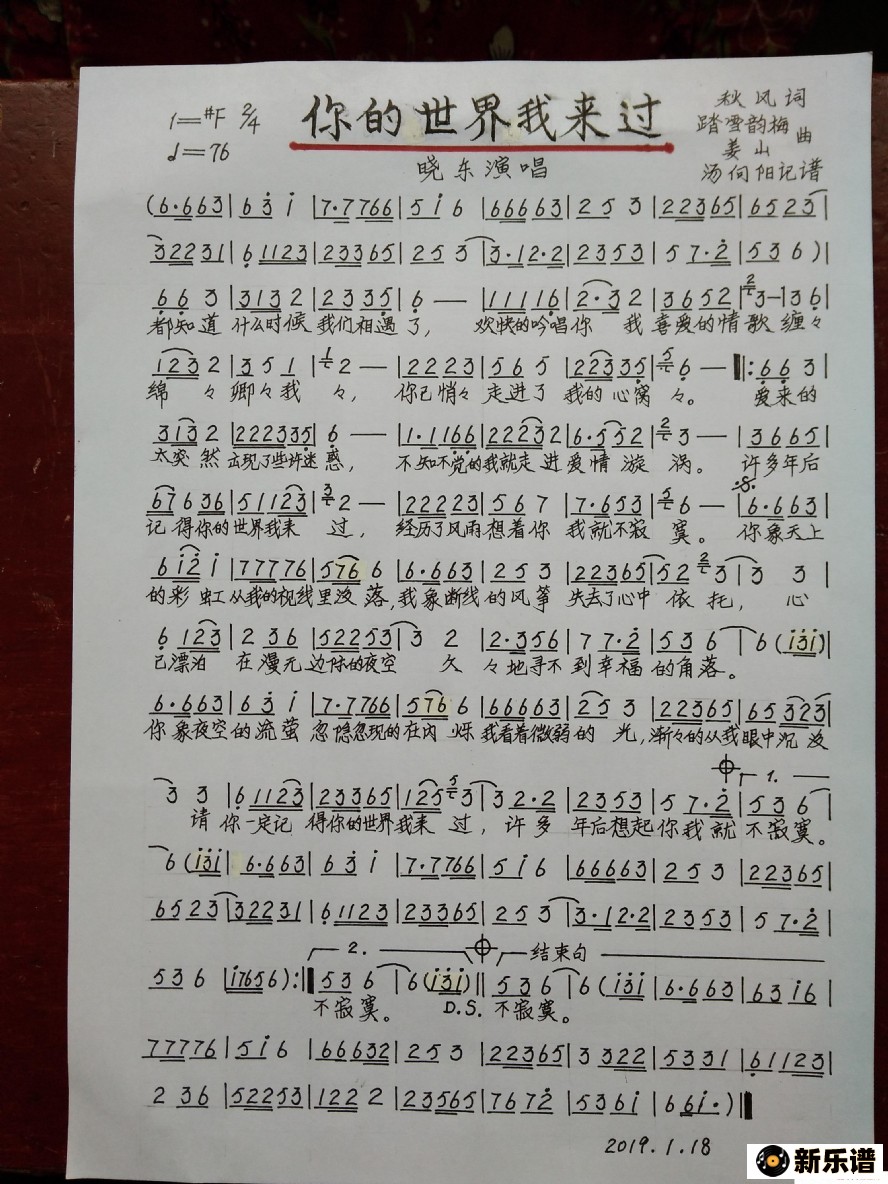 1=#F 2/4
你的世界我来过
秋风词
踏雪韵梅
姜山
曲
♩=76
晓东演唱
汤向阳记谱
(6·663|63i|7·7766|5i6|66663|253|22365|6523|
32231|61123|23365|253|3·12·2|2353|57·2|536)|
663|3132|2335|6—|11116|2·32|3652|3-136|
都知道什么时候我们相遇了,欢快的吟唱你我喜爱的情歌缠々
1232|351|2—|2223|565|22335|6—|:663|
绵々卿々我々,你已悄々走进了我的心窝々。爱来的
3132|222335|6—|1·1166|22232|6·552|3—|3665|
太突然出现了些许迷惑,不知不觉的我就走进爱情漩涡。许多年后
67636|51123|2—|22223|567|7·653|6—|6·663|
记得你的世界我来过,经历了风雨想着你我就不寂寞。你象天上
6i2i|77776|5766|6·663|253|22365|523|33|
的彩虹从我的视线里没落,我象断线的风筝失去了心中依托,心
6123|236|52253|32|2·356|77·2|536|6(i3i)|
已漂泊在漫无边际的夜空久々地寻不到幸福的角落。
6·663|63i|7·7766|5766|66663|253|22365|65323|
你象夜空的流萤忽隐忽现的在闪烁我看着微弱的光,渐々的从我眼中沉没
1.
33|61123|23365|1253|32·2|2353|57·2|536|
请你一定记得你的世界我来过,许多年后想起你我就不寂寞。
6(i3i|6·663|63i|7·7766|5i6|66663|253|22365|
6523|32231|61123|23365|253|3·12·2|2353|57·2|
2.
结束句
536|i7656):|536|6(i3i)||536|6(i3i|6·663|63i6|
不寂寞。D.S.不寂寞。
77776|5i6|66632|253|22365|3322|5331|61123|
236|52253|1222|23565|7672|536i|66i·)|
2019.1.18
新乐谱